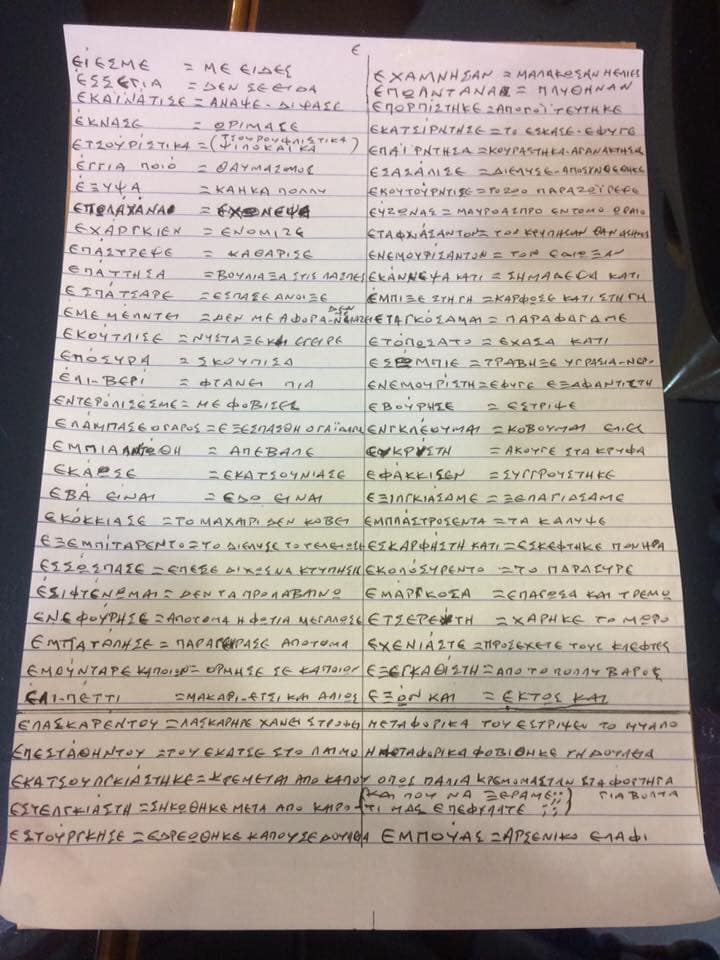 Ε
ΕΊΕΣΜΕ = ΜΕ ΕΙΔΕΣ
ΕΣΣΕΓΙΑ = ΔΕΝ ΣΕ ΕΙΔΑ
ΕΚΑΪΝΑΤΙΣΕ = ΑΝΑΨΕ-ΔΙΨΑΣΕ
ΕΚΝΑΣΕ = ΩΡΙΜΑΣΕ
ΕΤΣΟΥΡΙΣΤΙΚΑ = (ΤΣΟΥΡΟΥΦΛΙΣΤΙΚΑ ΨΙΛΟΚΑΙΚΑ)
ΕΓΓΙΑ ΠΟΙΟ = ΘΑΥΜΑΣΜΟΣ
ΕΞΥΨΑ = ΚΑΗΚΑ ΠΟΛΛΥ
ΕΠΩΛΑΧΑΝΑ = ΕΧΩΝΕΨΑ
ΕΧΑΡΓΚΙΕΝ = ΕΝΟΜΙΖΕ
ΕΠΑΣΤΡΕΨΕ = ΚΑΘΑΡΙΣΕ
ΕΠΑΤΤΗΣΑ = ΒΟΥΛΙΑΞΑ ΣΤΙΣ ΛΑΣΠΕΣ
ΕΣΠΑΤΣΑΡΕ = ΕΣΠΑΣΕ ΑΝΟΙΞΕ
ΕΜΕ ΜΕΛΝΤΕΙ = ΔΕΝ ΜΕ ΑΦΟΡΑ-ΔΕΝ ΝΟΙΑΖΕΙ
ΕΚΟΥΤΛΙΣΕ = ΝΥΣΤΑΞΕ ΚΑΙ ΕΓΕΙΡΕ
ΕΠΟΣΥΡΑ = ΣΚΟΥΠΙΣΑ
ΕΛΙ-ΒΕΡΙ = ΦΤΑΝΕΙ ΠΙΑ
ΕΝΤΕΡΟΛΙΣΕΣΜΕ = ΜΕ ΦΟΒΙΣΕΣ
ΕΛΑΜΠΑΣΕ ΟΓΑΡΟΣ = ΕΞΕΣΠΑΣΘΗ ΟΓΑΪΔΑΡΟΣ
ΕΜΠΙΑΛΝΤΩΘΗ = ΑΠΕΒΑΛΕ
ΕΚΑΡΣΕ = ΕΚΑΤΣΟΥΝΙΑΣΕ
ΕΒΑ ΕΙΝΑΙ = ΕΔΟ ΕΙΝΑΙ
ΕΚΟΚΚΙΑΣΕ = ΤΟ ΜΑΧΑΙΡΙ ΔΕΝ ΚΟΒΕΙ
ΕΞΕΜΠΙΤΑΡΕΝΤΟ = ΤΟ ΔΙΕΛΥΣΕ ΤΟ ΤΕΛΕΙΩΣΕ
ΕΣΣΩΣΠΑΣΕ = ΕΠΕΣΕ ΔΙΧΩΣ ΝΑ ΚΤΥΠΗΣΗ
ΕΣΙΦΤΕΝΩΜΑΙ = ΔΕΝ ΤΑ ΠΡΟΛΑΒΑΙΝΩ
ΕΝΕΦΟΥΡΗΣΕ = ΑΠΟΤΟΜΑ Η ΦΩΤΙΑ ΜΕΓΑΛΩΣΕ
ΕΜΠΑΤΑΛΗΣΕ = ΠΑΡΑΓΕΡΑΣΕ ΑΠΟΤΟΜΑ
ΕΜΟΥΝΤΑΡΕ ΚΑΠΟΙΟΝ = ΟΡΜΗΣΕ ΣΕ ΚΑΠΟΙΟΝ
ΕΛΙ-ΠΕΤΤΙ = ΜΑΚΑΡΙ-ΕΤΣΙ ΚΑΙ ΑΛΙΩΣ
ΕΧΑΜΝΗΣΑΝ = ΜΑΛΑΚΩΣΑΝ Η ΕΛΙΕΣ
ΕΠΩΛΑΝΤΑΝΑ = ΠΛΥΘΗΝΑΝ
ΕΠΟΡΠΙΣΤΗΚΕ = ΑΠΟΓΟΪΤΕΥΤΗΚΕ
ΕΚΑΤΣΙΡΝΤΗΣΕ = ΤΟ ΕΣΚΑΣΕ-ΕΦΥΓΕ
ΕΠΑΪΡΝΤΗΣΑ = ΚΟΥΡΑΣΤΗΚΑ-ΑΓΑΝΑΚΤΗΣΑ
ΕΣΑΣΑΛΙΣΕ = ΔΙΕΛΥΣΕ-ΑΠΟΣΥΝΘΕΘΗΚΕ
ΕΚΟΥΤΟΥΡΝΤΙΣΕ = ΤΟ ΖΩΟ ΠΑΡΑΖΩΪΡΕΨΕ
ΕΥΖΩΝΑΣ = ΜΑΥΡΟΑΣΠΡΟ ΕΝΤΟΜΟ ΩΡΑΙΟ
ΕΤΑΦΧΙΑΣΑΝΤΟΝ = ΤΟΝ ΚΡΥΠΗΣΑΝ ΘΑΝΑΣΗΜΑ
ΕΝΕΜΟΥΡΙΣΑΝΤΟΝ = ΤΟΝ ΕΔΙΩΞΑΝ
ΕΚΑΝΝΕΨΑ ΚΑΤΙ = ΣΗΜΑΔΕΨΑ ΚΑΤΙ
ΕΜΠΙΞΕ ΣΤΗ ΓΗ = ΚΑΡΦΩΣΕ ΚΑΤΙ ΣΤΗ ΓΗ
ΕΤΑΓΚΟΣΑΜΑΙ = ΠΑΡΑΦΑΓΑΜΕ
ΕΤΟΠΟΣΑΤΟ = ΕΧΑΣΑ ΚΑΤΙ
ΕΣΡΟΜΠΙΕ = ΤΡΑΒΗΞΕ ΥΓΡΑΣΙΑ-ΝΕΡΟ
ΕΝΕΜΟΥΡΙΣΤΗ = ΕΦΥΓΕ ΕΞΑΦΑΝΤΙΣΤΗ
ΕΒΟΥΡΗΣΕ = ΕΣΤΡΙΨΕ
ΕΝΓΚΛΕΟΥΜΑΙ = ΚΟΒΟΥΜΑΙ ΕΛΙΕΣ
ΕΥΚΡΥΣΤΗ = ΑΚΟΥΓΕ ΣΤΑ ΚΡΥΦΑ
ΕΦΑΚΚΙΣΕΝ = ΣΥΓΓΡΟΥΣΤΗΚΕ
ΕΞΙΓΚΙΑΣΑΜΕ = ΞΕΠΑΓΙΔΣΑΜΕ
ΕΜΠΛΑΣΤΡΟΣΕΝΤΑ = ΤΑ ΚΑΛΥΨΕ
ΕΣΚΑΡΦΗΣΤΗ ΚΑΤΙ = ΕΣΚΕΦΤΗΚΕ ΠΟΝΗΡΑ
ΕΚΟΛΟΣΥΡΕΝΤΟ = ΤΟ ΠΑΡΑΣΥΡΕ
ΕΜΑΡΓΚΟΣΑ = ΕΠΑΓΩΣΑ ΚΑΙ ΤΡΕΜΩ
ΕΤΣΕΡΕΥΤΗ = ΧΑΡΗΚΕ ΤΟ ΜΩΡΟ
ΕΧΕΝΙΑΣΤΕ = ΠΡΟΣΕΧΕΤΕ ΤΟΥΣ ΚΛΕΦΤΕΣ
ΕΞΕΓΚΑΘΙΣΤΗ = ΑΠΟ ΤΟ ΠΟΛΛΥ ΒΑΡΟΣ
ΕΞΟΝ ΚΑΙ = ΕΚΤΟΣ ΚΑΙ
ΕΛΑΣΚΑΡΕΝΤΟΥ = ΛΑΣΚΑΡΗΡΕ ΧΑΝΕΙ ΣΤΡΟΦΕΣ ΜΕΤΑΦΟΡΙΚΑ ΤΟΥ ΕΣΤΡΙΨΕΝ ΤΟ ΜΥΑΛΟ
ΕΠΕΣΤΑΘΗΝΤΟΥ = ΤΟΥ ΕΚΑΤΣΕ ΣΤΟ ΛΑΙΜΟ Η ΜΕΤΑΦΟΡΙΚΑ ΦΟΒΙΘΗΚΕ ΤΗ ΔΟΥΛΕΙΑ
ΕΚΑΤΣΟΥΛΓΚΙΑΣΤΗΚΕ = ΚΡΕΜΕΤΑΙ ΑΠΟ ΚΑΠΟΥ ΟΠΩΣ ΠΑΛΙΑ ΚΡΕΜΟΜΑΣΤΑΝ ΣΤΑ ΦΟΡΤΗΓΑ ΓΙΑ ΒΟΛΤΑ
(ΚΑΙ ΠΟΥ ΝΑ ΞΕΡΑΜΕ;; ΤΙ ΜΑΣ ΕΠΕΦΥΛΑΤΕ;;)
ΕΣΤΕΛΓΚΙΑΣΤΗ = ΣΗΚΩΘΗΚΕ ΜΕΤΑ ΑΠΟ ΚΑΙΡΟ
ΕΣΤΟΥΡΓΚΗΣΕ = ΕΔΡΕΩΘΗΚΕ ΚΑΠΟΥ ΣΕ ΔΟΥΛΕΙΑ
ΕΜΠΟΥΑΣ = ΑΡΣΕΝΙΚΟ ΕΛΑΦΙ